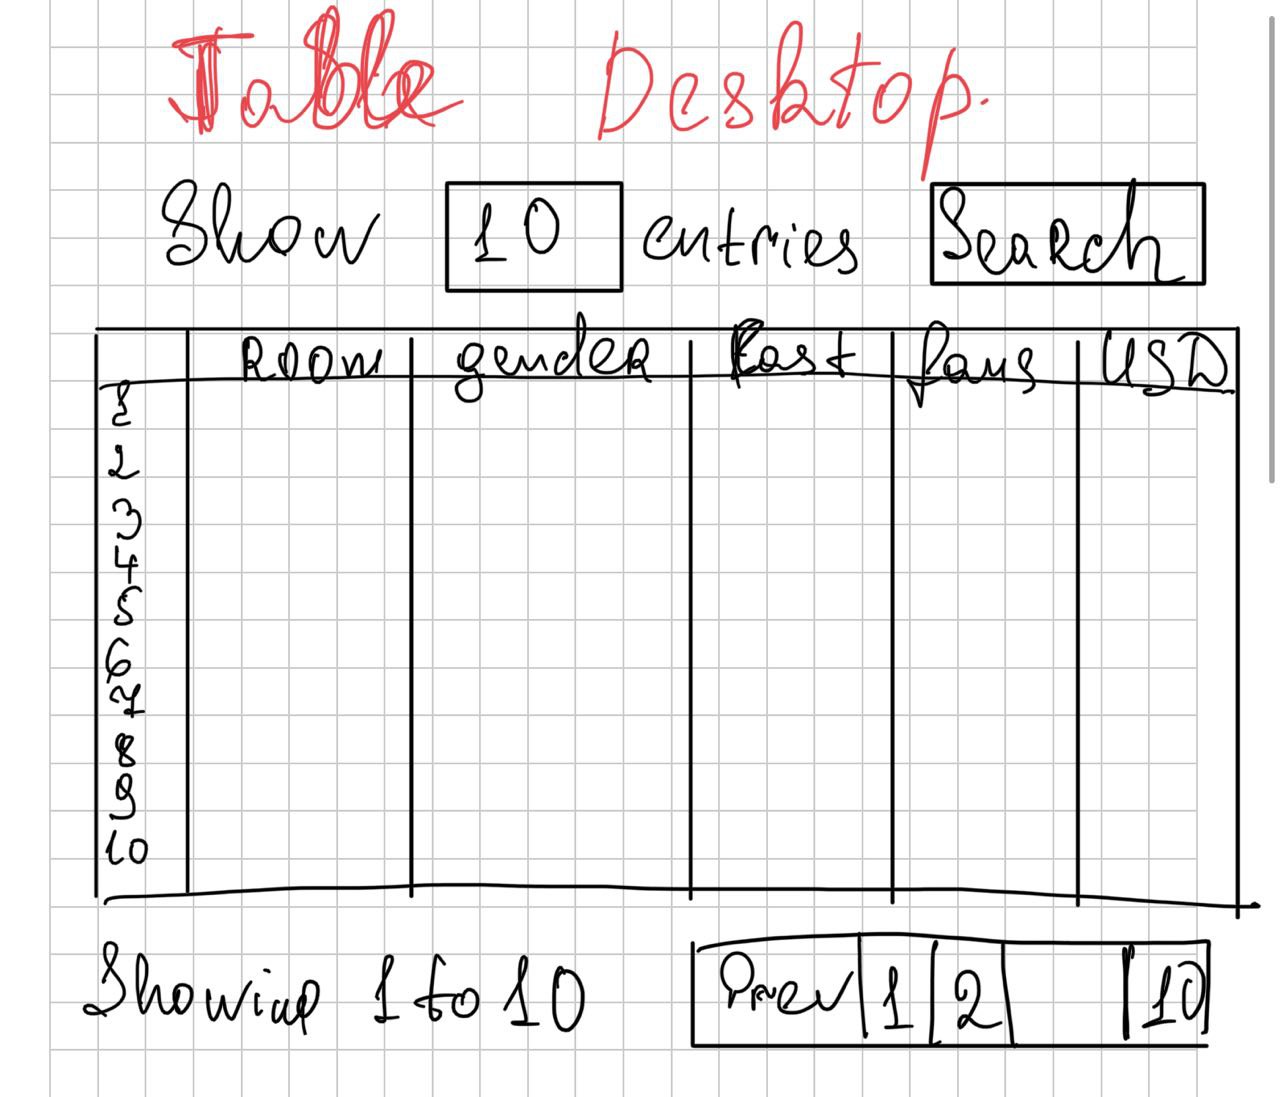 Table Desktop.
Show 10 entries Search
Room gender Last fans USD
1
2
3
4
5
6
7
8
9
10
Showing 1 to 10
Prev 1 2 10